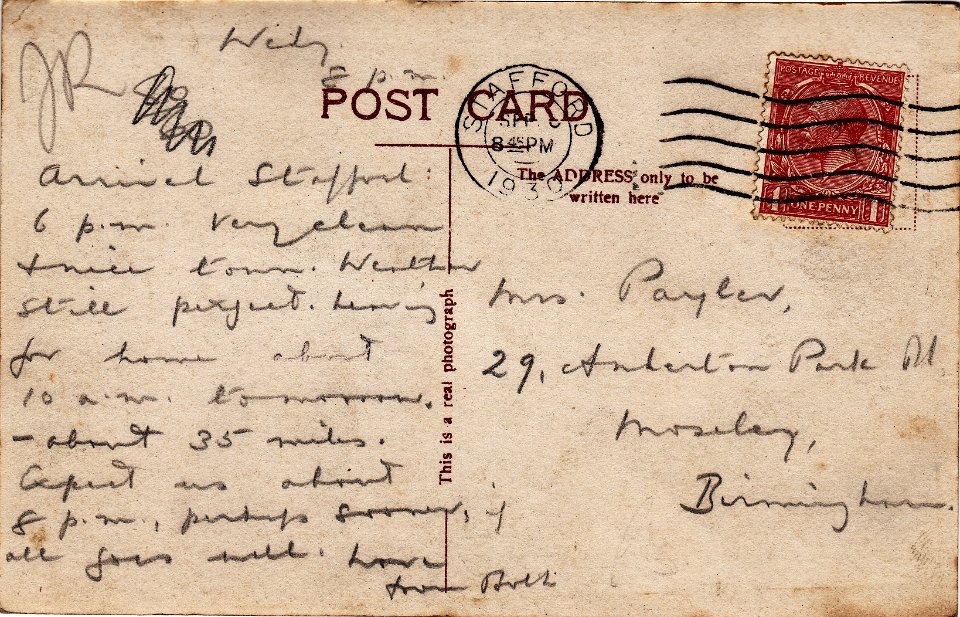 JR
Wedy.
8 p.m.
POST CARD
STAFFORD
SEP
8 45 PM
1930
POSTAGE REVENUE
1 ONE PENNY 1
The ADDRESS only to be
written here
Arrived Stafford
6 p.m. Very clean
& nice town. Weather
still perfect. Leaving
for home about
10 a.m. tomorrow,
- about 35 miles.
Expect us about
8 p.m., perhaps sooner, if
all goes well. Love
from Both
This is a real photograph
Mrs. Payler,
29, Amberton Park Rd
Moseley,
Birmingham.